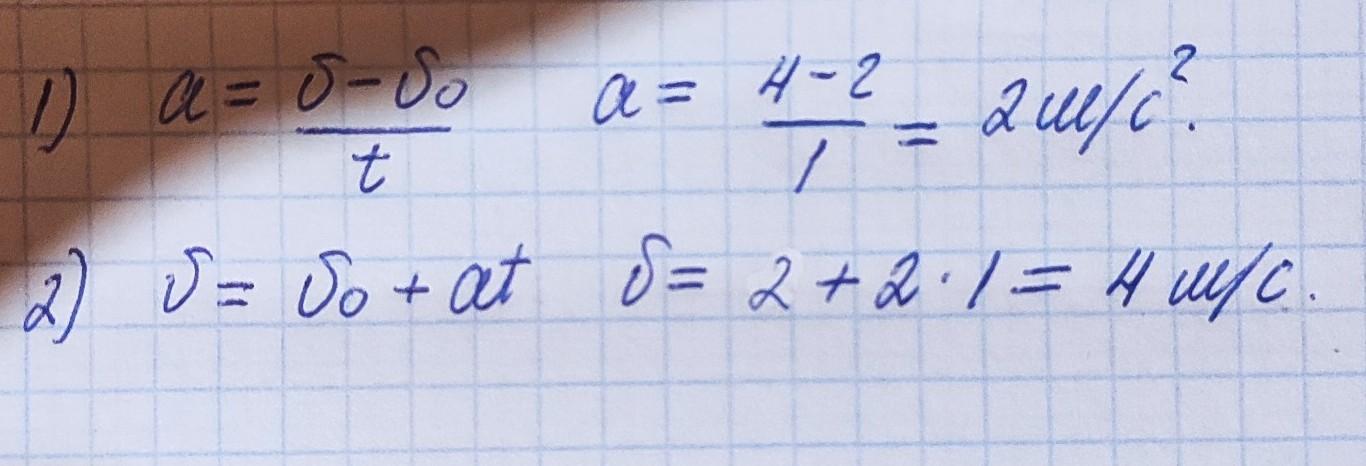 1) a = (υ - υ₀)/t a = (4 - 2)/1 = 2 м/с².
2) υ = υ₀ + at υ = 2 + 2 · 1 = 4 м/с.